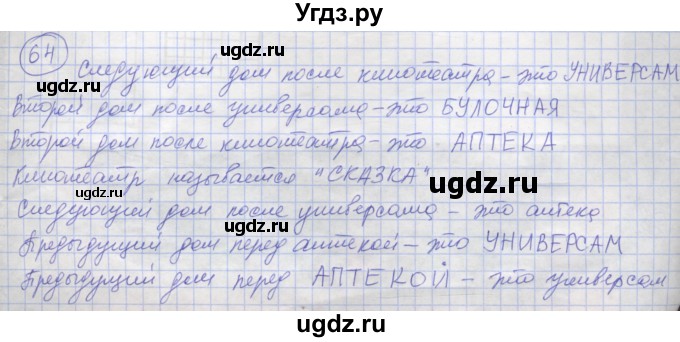 Угдз.ру
64 Следующий дом после кинотеатра – это УНИВЕРСАМ
Второй дом после универсама – это БУЛОЧНАЯ
Второй дом после кинотеатра – это АПТЕКА
Кинотеатр называется "СКАЗКА"
Следующий дом после универсама – это аптека
Предыдущий дом перед аптекой – это УНИВЕРСАМ
Предыдущий дом перед АПТЕКОЙ – это универсам
ugdz.ru
ugdz.ru
ugdz.ru
ugdz.ru
ugdz.ru
ugdz.ru
ugdz.ru